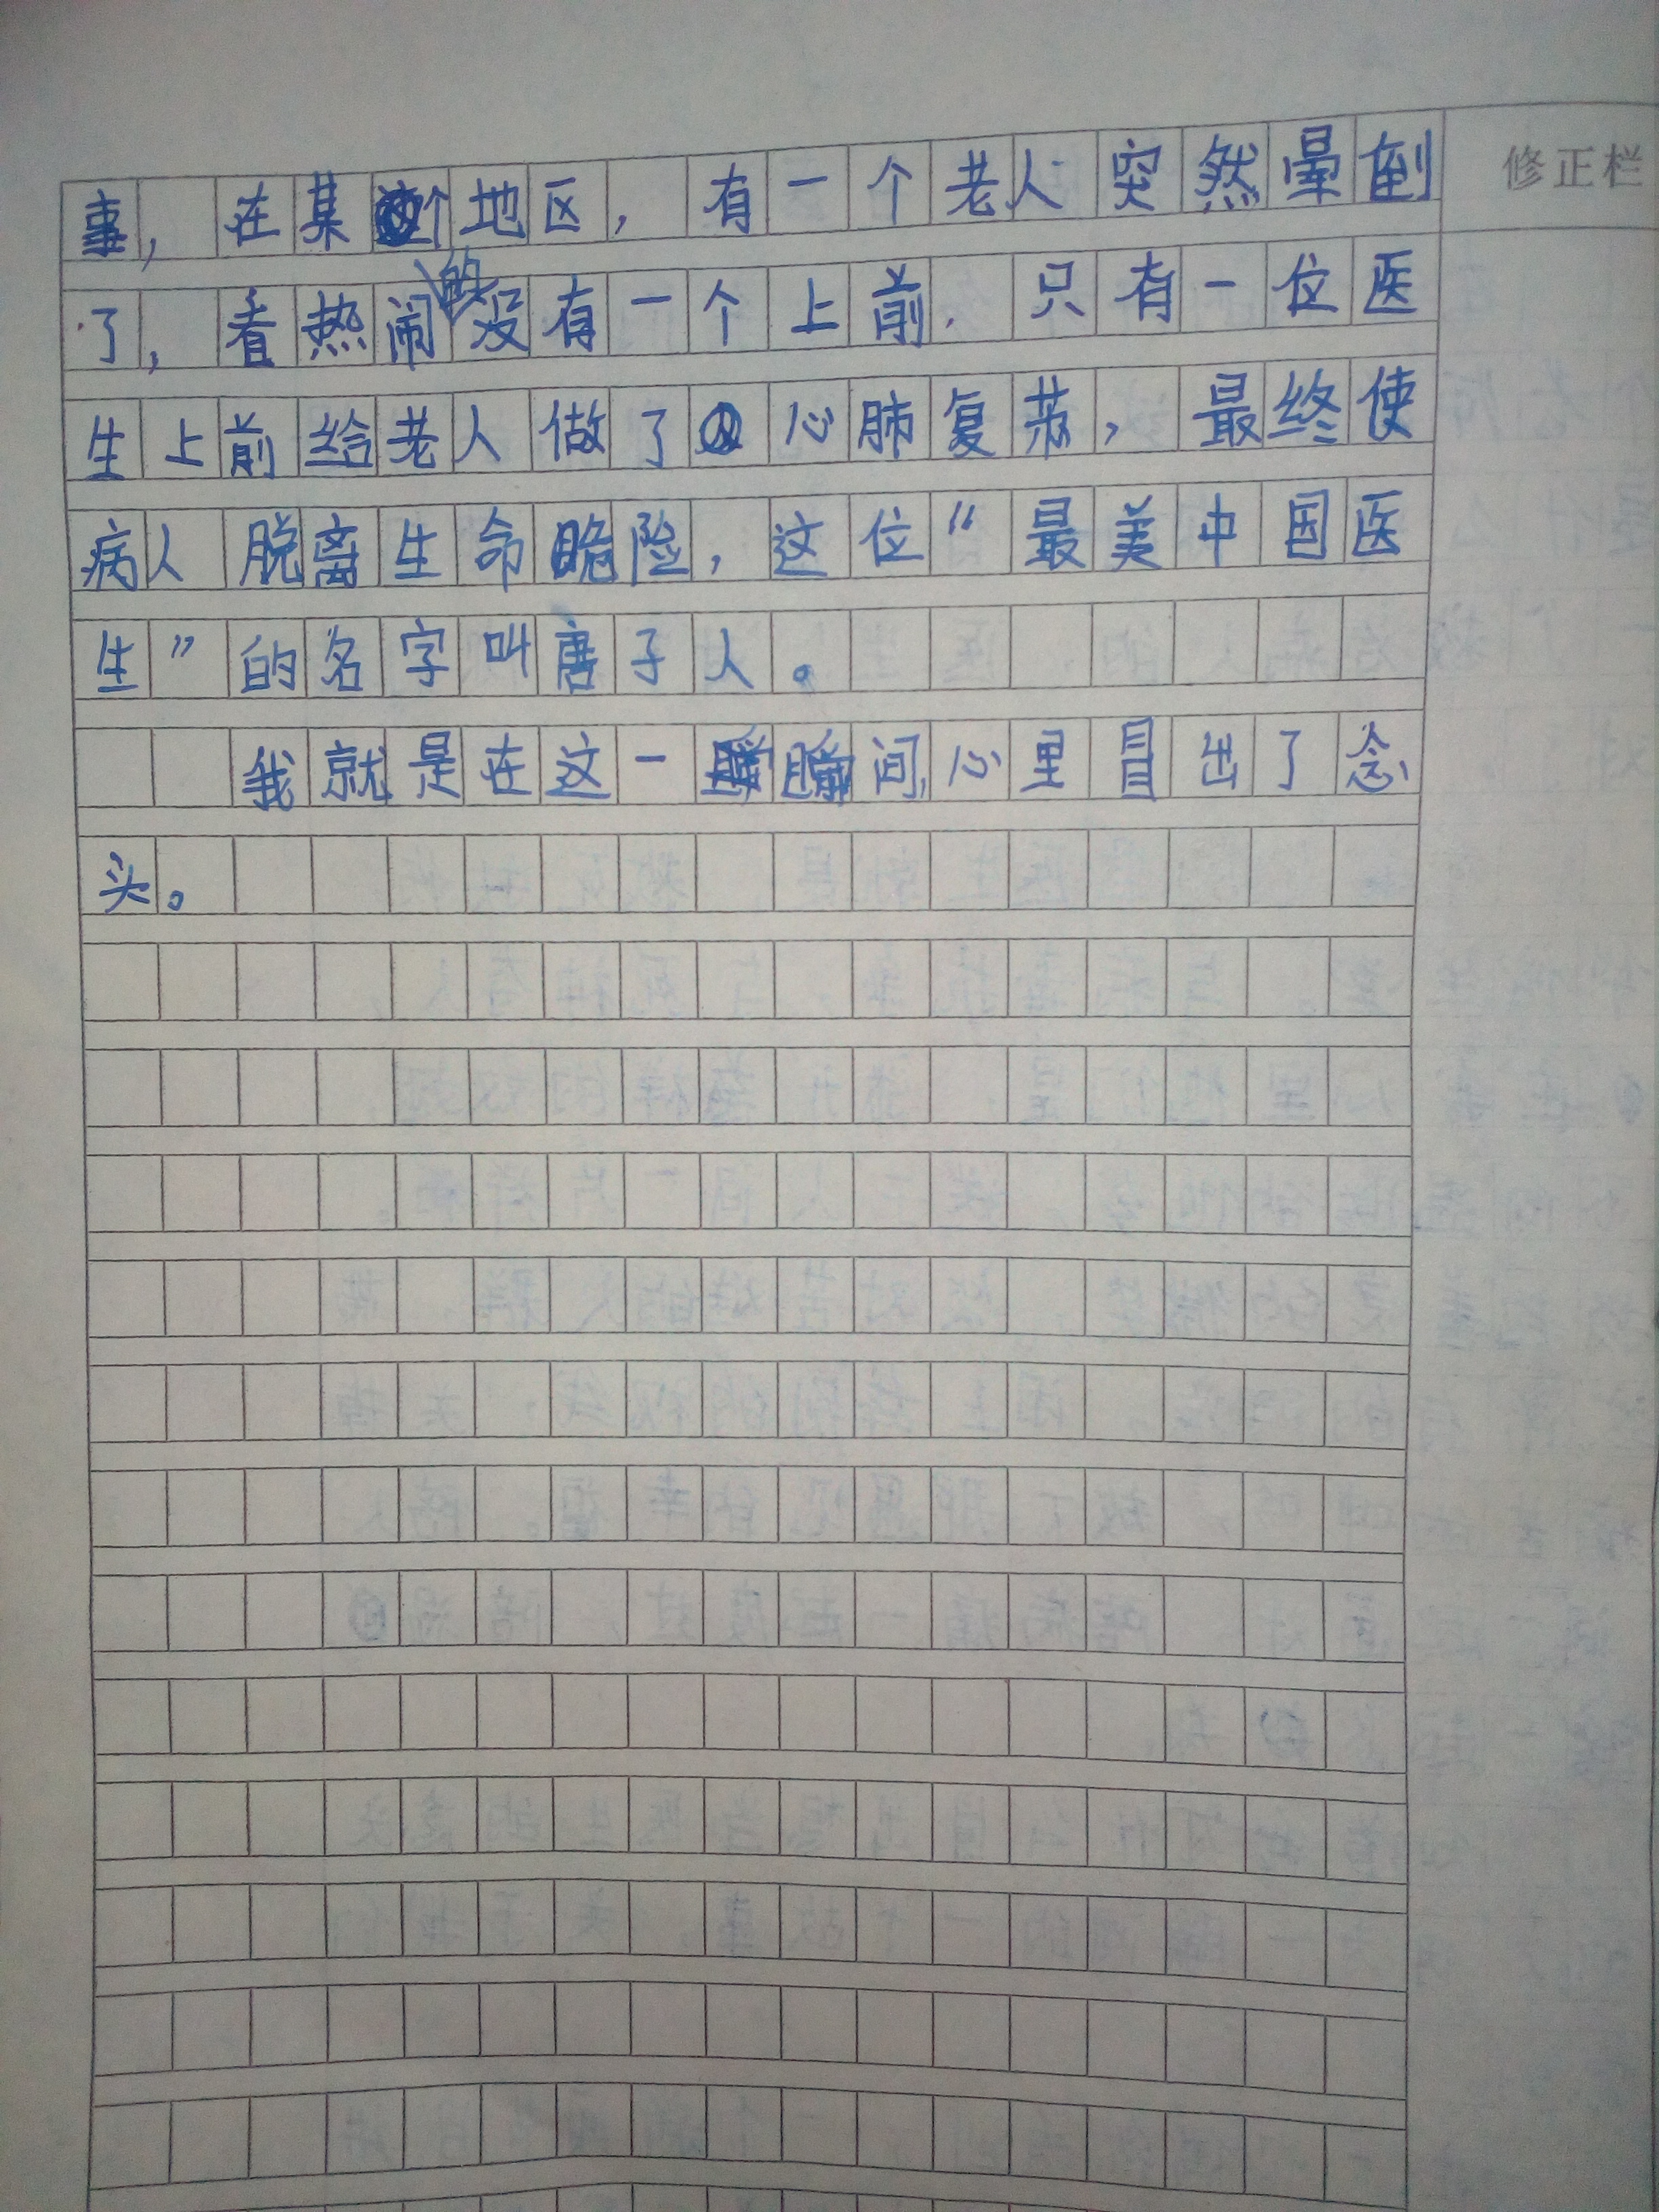 修正栏
事，在某个地区，有一个老人突然晕倒
了，看热闹的没有一个上前，只有一位医
生上前给老人做了心肺复苏，最终使
病人脱离生命脆险，这位“最美中国医
生”的名字叫唐子人。
我就是在这一瞬间，心里冒出了念
头。